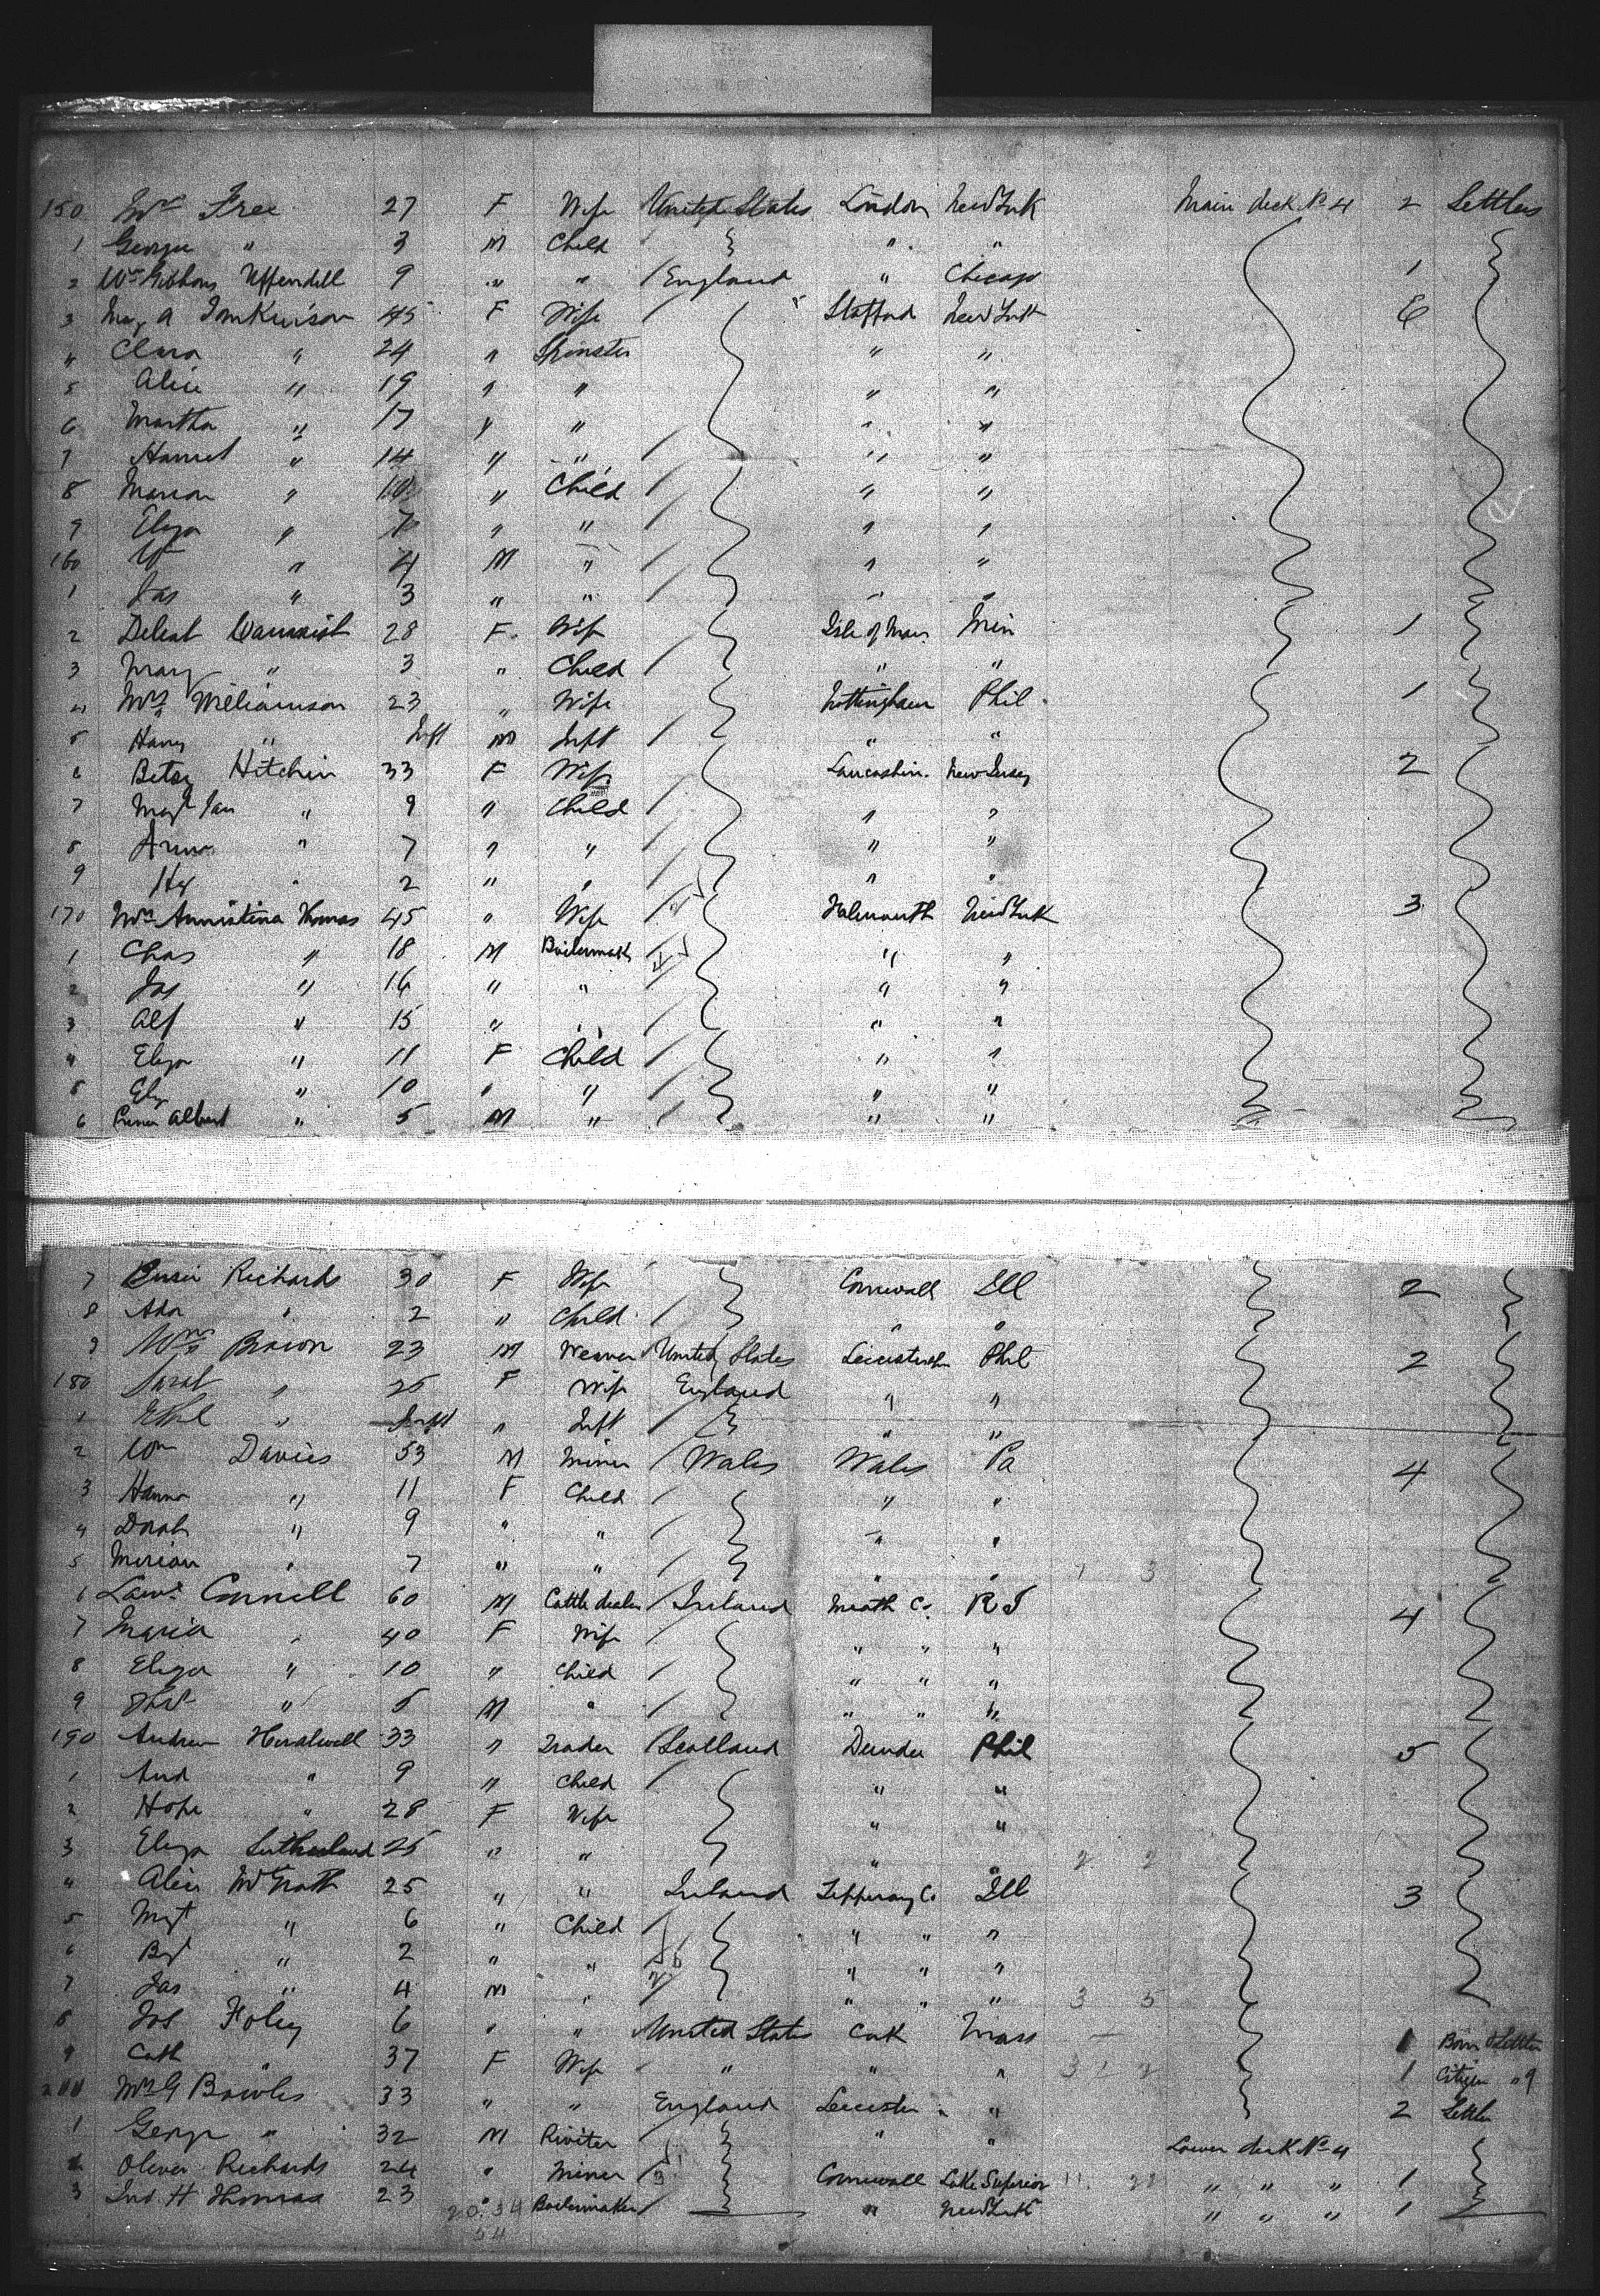 150 Mrs Free 27 F Wife United States London New York Main deck No 4 2 Settlers
1 George " 3 M Child " "
2 Wm Gibbons Uffendell 9 " " England " Chicago 1
3 Mary A Tomkinson 45 F Wife Stafford New York 6
4 Clara " 24 " Spinster " "
5 Alice " 19 " " " "
6 Martha " 17 " " " "
7 Harriet " 14 " " " "
8 Marion " 10 " Child " "
9 Eliza " 7 " " " "
160 Wm " 4 M " " "
1 Jas " 3 " " " "
2 28 F Wife Isle of Man 1
3 Mary " 3 " Child " "
4 Mrs Williamson 23 " Wife Nottingham Phil 1
5 Harry " Inft M Inft " "
6 Betsy Hitchin 33 F Wife Lancashire New Jersey 2
7 Mary Jan " 9 " Child " "
8 Ann " 7 " " " "
9 Hy " 2 " " " "
170 Mrs Thomas 45 " Wife Falmouth New York 3
1 Chas " 18 M Boilermaker " "
2 Jas " 16 " " " "
3 Alf " 15 " " " "
4 Eliza " 11 F Child " "
5 Eliz " 10 " " " "
6 Prince Albert " 5 M " " "
7 Richards 30 F Wife Cornwall Ill 2
8 Ada " 2 " Child " "
9 Brown 23 M Weaver United States Leicestershire Phil 2
180 Sarah " 25 F Wife England " "
1 Ethel " Inft " Inft " "
2 Wm Davies 53 M Miner Wales Wales Pa 4
3 Hanna " 11 F Child " "
4 " 9 " " " "
5 Miriam " 7 " " " "
6 Lawr. Connell 60 M Cattle dealer Ireland Meath Co. R I 4
7 Maria " 40 F Wife " " "
8 Eliza " 10 " Child " " "
9 " 5 M " " " "
190 Andrew 33 " Trader Scotland Dundee Phil 5
1 And " 9 " Child " "
2 Hope " 28 F Wife " "
3 Eliza Sutherland 25 " " " "
4 Alice McGrath 25 " " Ireland Tipperary Co Ill 3
5 Mgt " 6 " Child " " "
6 Bgt " 2 " " " " "
7 Jas " 4 M " " " "
8 Jos Foley 6 " " United States Cork Mass 1
9 Cath " 37 F Wife " " " 1 Citizen
200 Mrs G Bowles 33 " " England Leicester " 2 Settler
1 George " 32 M Riviter " " Lower deck No 4
2 Oliver Richards 24 " Miner Cornwall Lake Superior " " " 1
3 Jno. H Thomas 23 " Boilermaker " New York " " " 1